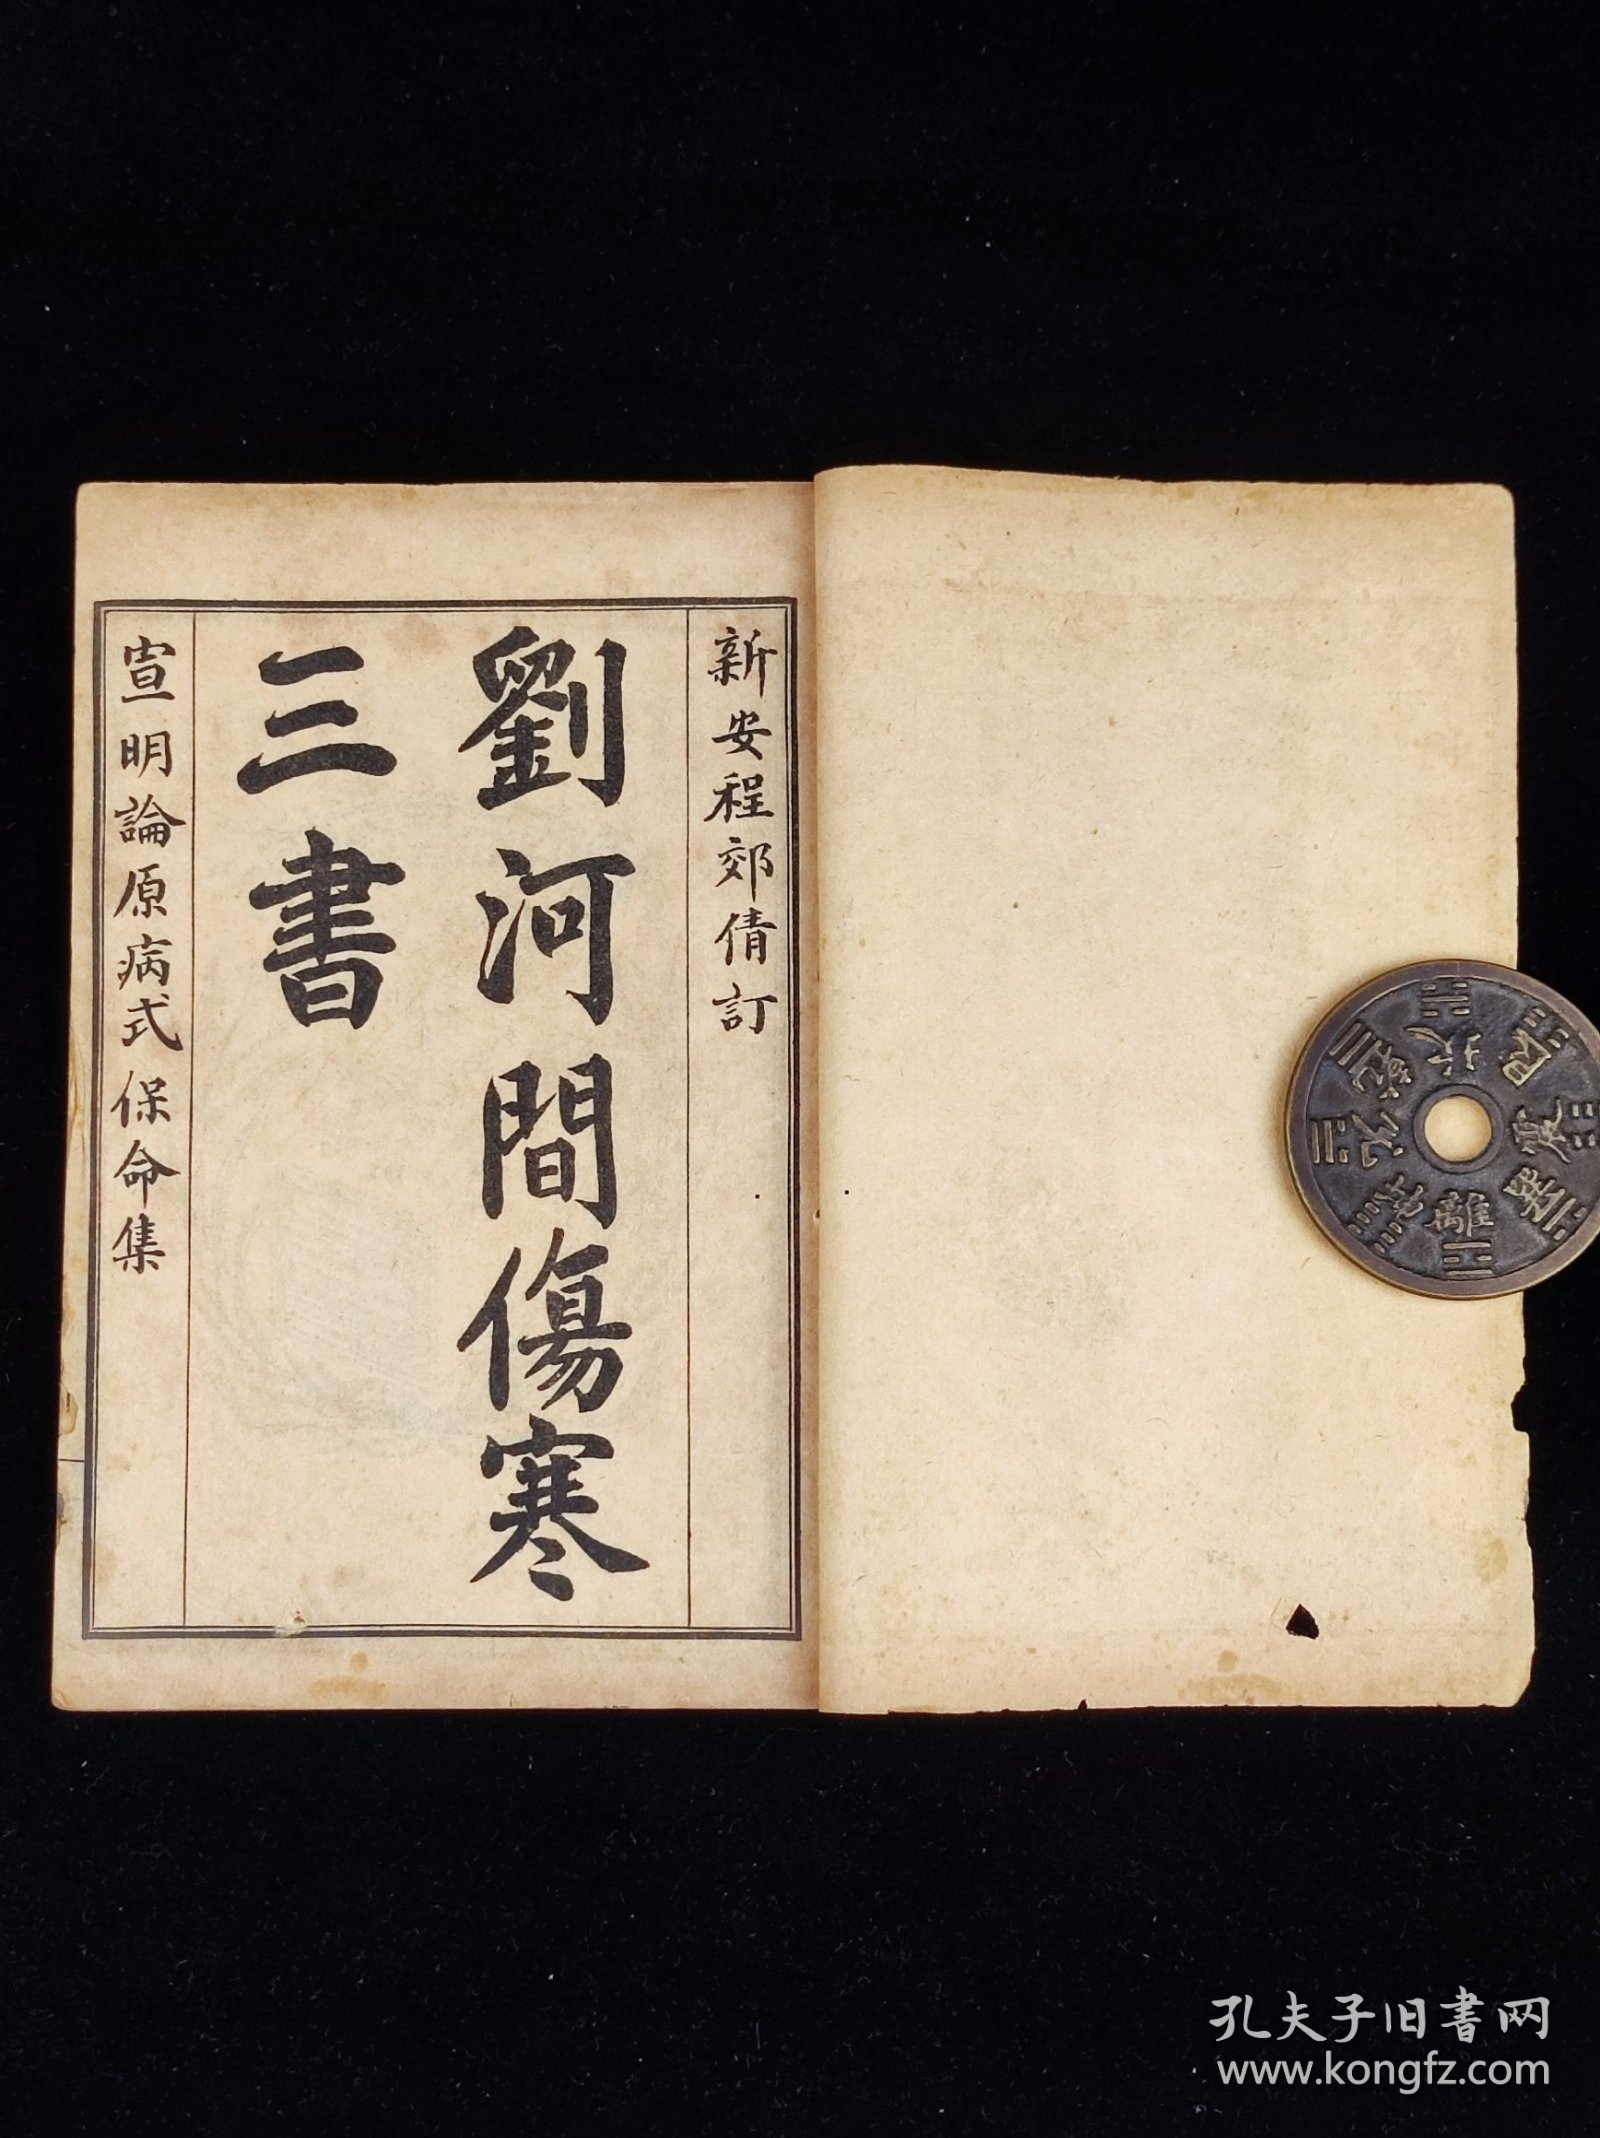 新安程郊倩訂
劉河間傷寒
三書
宣明論原病式保命集
離
震
巽
孔夫子旧书网
www.kongfz.com